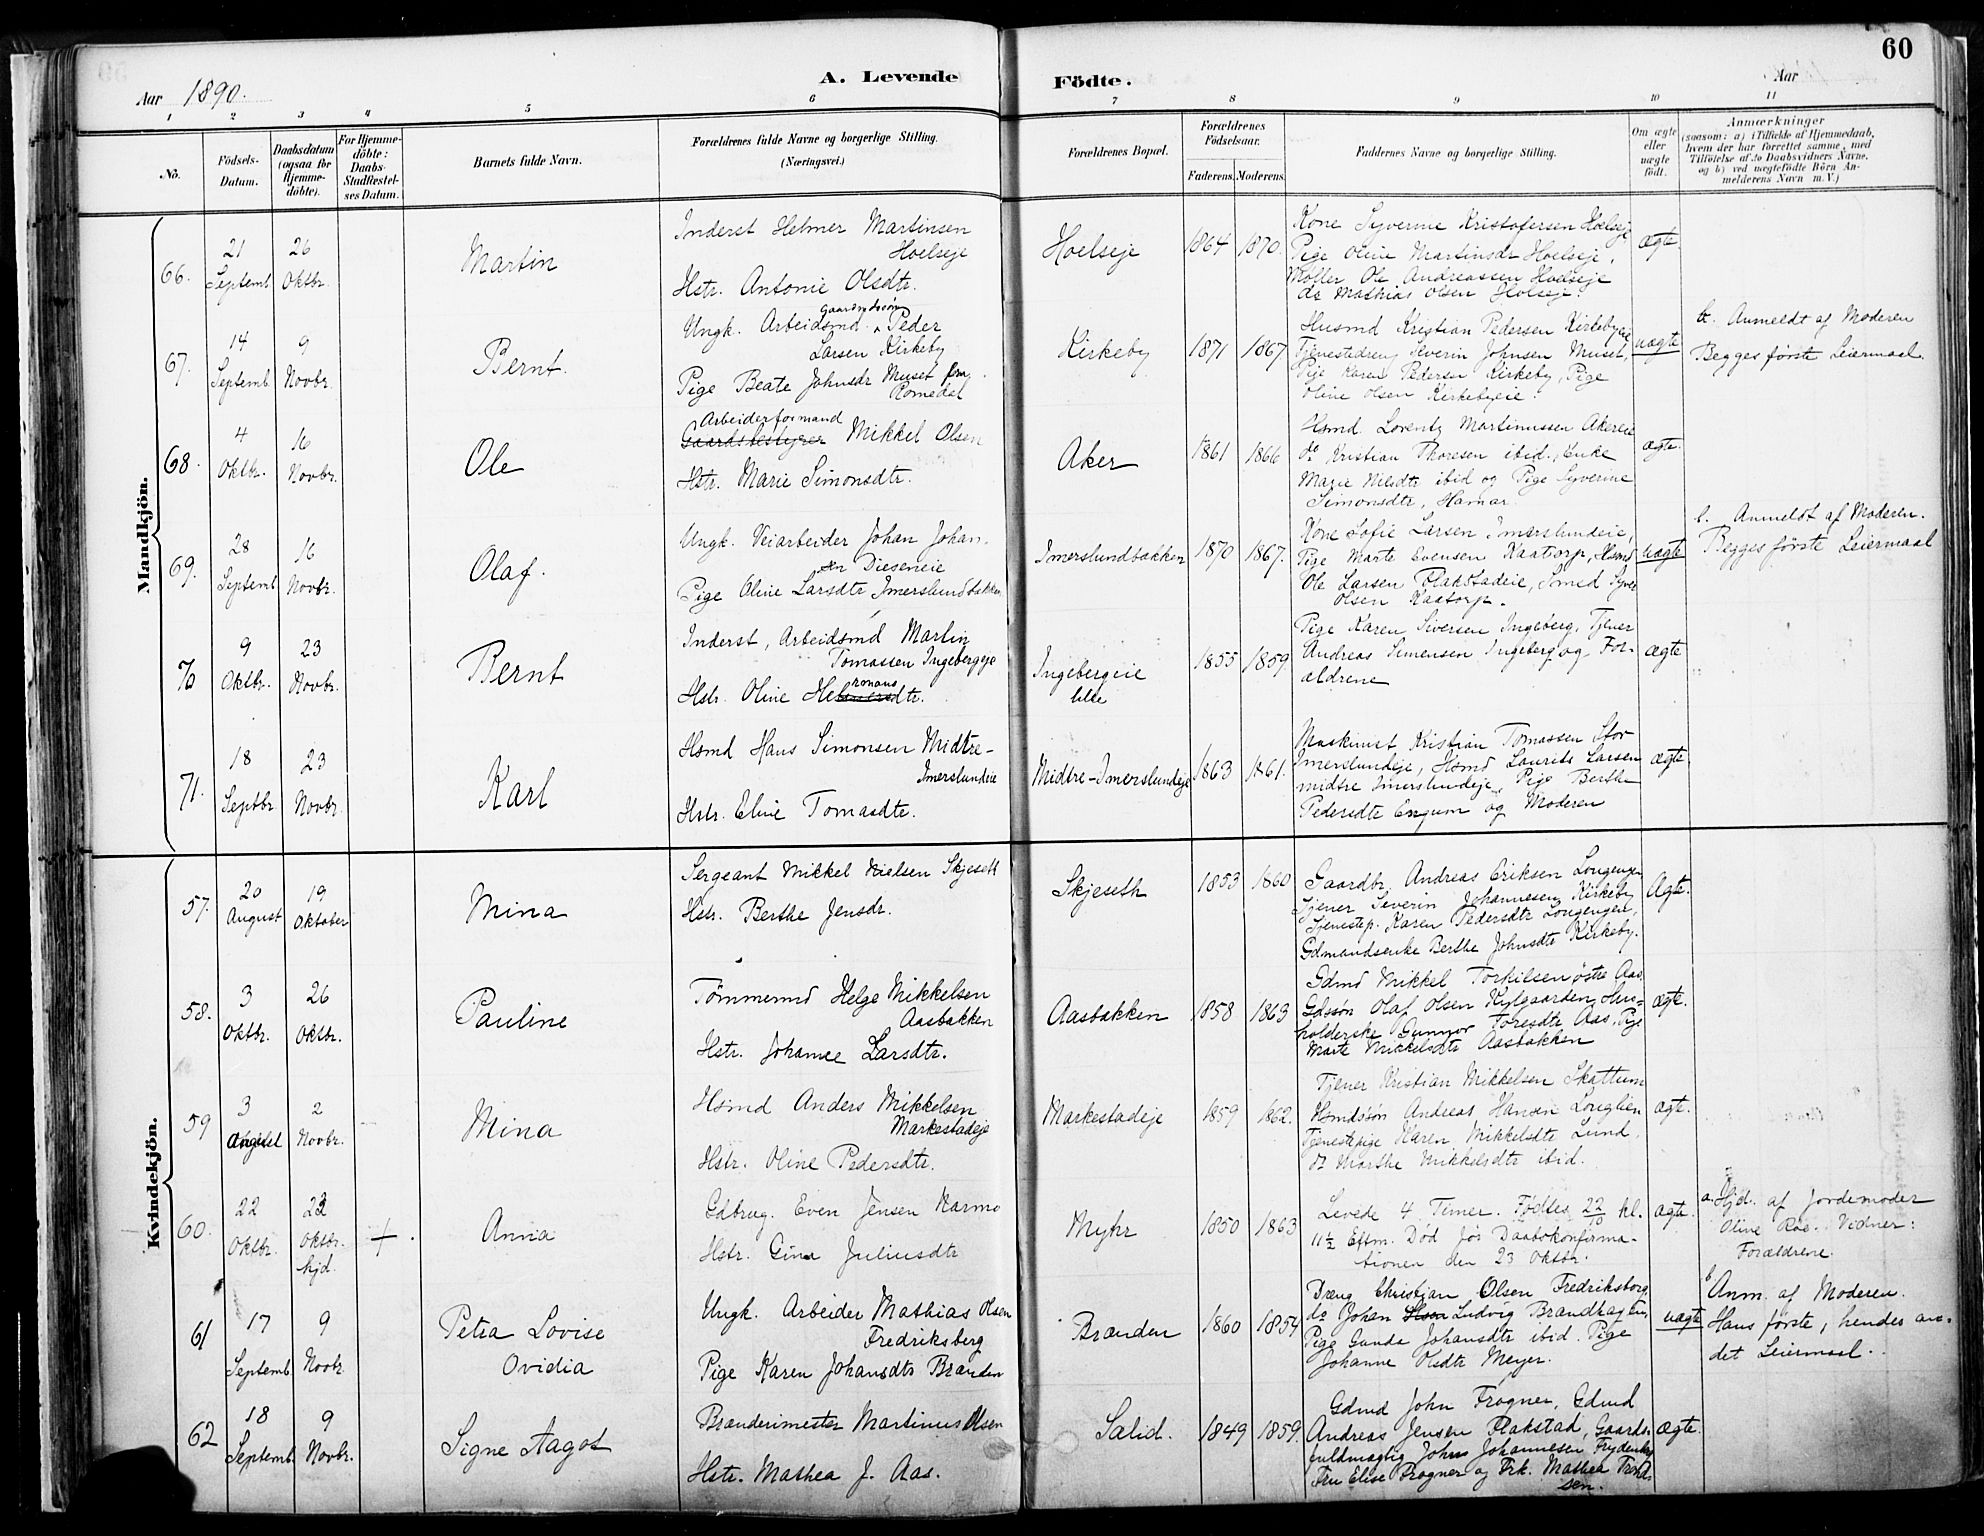 60
Aar 1890.
A. Levende Födte.
Aar
1 2 3 4 5 6 7 8 9 10 11
No.
Födsels-
Datum.
Daabsdatum
(ogsaa for
Hjemme-
döbte).
For Hjemme-
döbte:
Daabs-
Stadfæstel-
ses Datum.
Barnets fulde Navn.
Forældrenes fulde Navne og borgerlige Stilling.
(Næringsvei.)
Forældrenes Bopæl.
Forældrenes
Födselsaar.
Faderens. Moderens.
Faddernes Navne og borgerlige Stilling.
Om ægte
eller
uægte
födt.
Anmærkninger
(saasom: a) i Tilfælde af Hjemmedaab,
hvem der har forrettet samme, med
Tilföielse af to Daabsvidners Navne,
og b) ved uægtefödte Börn An-
melderens Navn m. V.)
Mandkjön.
66.
21
Septemb.
26
Oktbr.
Martin
Inderst Helmer Martinsen
Hoelseje
Hstr. Antonie Olsdtr.
Hoelseje
1864
1870.
Kone Syverine Kristofersen Hoelseje
Pige Oline Martinsdr Hoelseje,
Møller Ole Andreassen Hoelseje
do Mathias Olsen Holseje.
ægte
67.
14
Septemb.
9
Novbr.
Bernt.
Gaardmdssön
Ungk. Arbeidsmd. Peder
Larsen Kirkeby
Pige Beate Johnsdr Muset fra
Romedal
Kirkeby
1871
1867
Husmd Kristian Pedersen Kirkebyeie
Tjenestedreng Severin Johnsen Muset,
Pige Karen Pedersen Kirkeby, Pige
Oline Olsen Kirkebyeie.
uægte
b. Anmeldt af Moderen
Begges første Leiermaal.
68.
4
Oktbr.
16
Novbr.
Ole
Arbeiderformand
Gaardsbestyrer Mikkel Olsen
Hstr. Marie Simonsdtr.
Aker
1861
1866
Hsmd Lorentz Martinussen Akereie
do Kristian Thoresen ibid., Enke
Marie Nilsdtr ibid og Pige Syverine
Simonsdtr, Hamar.
ægte.
69.
28
Septemb.
16
Novbr.
Olaf.
Ungk. Veiarbeider Johan Johan-
sen Dieseneie
Pige Oline Larsdtr Imerslundbakken
Imerslundbakken
1870
1867.
Kone Sofie Larsen Imerslundeie,
Pige Marte Evensen Kaatorp, Hsmd
Ole Larsen Flakstadeie, Smed Syver
Olsen Kaatorp.
uægte
b. Anmeldt af Moderen.
Begges første Leiermaal
70
9
Oktbr.
23
Novbr.
Bernt
Inderst, Arbeidsmd Martin
Tomassen Ingebergeje
Hstr. Oline Hermansdtr.
Ingebergeie
lille
1855
1859.
Pige Karen Siversen Ingeberg, Tjener
Andreas Simensen Ingeberg og For-
ældrene
ægte
71.
18
Septbr.
23
Novbr.
Karl
Hsmd Hans Simonsen Midtre-
Imerslundeie
Hstr. Eline Tomasdtr.
Midtre-Imerslundeje
1863
1861.
Maskinist Kristian Tomassen Stor
Imerslundeje, Hsmd Laurits Larsen
midtre Imerslundeje, Pige Berthe
Pedersdtr Engum og Moderen
ægte
Kvindekjön.
57.
20
August
19
Oktober
Mina
Sergeant Mikkel Nielsen Skjeseth
Hstr. Berthe Jensdr.
Skjeseth
1853
1860
Gaardbr. Andreas Eriksen Longengen
Tjener Severin Johannesen Kirkeby
Tjenestep. Karen Pedersdtr Longengen,
Gdmandsenke Berthe Johnsdtr Kirkeby.
Ægte.
58.
3
Oktbr.
26
Oktbr.
Pauline
Tømmermd Helge Mikkelsen
Aasbakken
Hstr. Johanne Larsdtr.
Aasbakken
1858
1863
Gdmd Mikkel Torkilsen østre Aas
Gdssøn Olaf Olsen Kylgaarden, Hus-
holderske Gunnor Toresdtr Aas, Pige
Marte Mikkelsdtr Aasbakken
ægte.
59
3
August
2
Novbr.
Mina
Hsmd Anders Mikkelsen
Markestadeje
Hstr. Oline Pedersdtr.
Markestadeje
1859
1862.
Tjener Kristian Mikkelsen Skattum
Hsmdssøn Andreas Hansen Longlien
Tjenestepige Karen Mikkelsdtr Lund,
do Marthe Mikkelsdtr ibid.
ægte.
60.
22
Oktbr.
23
Oktbr.
hjd.
+
Anna
Gdbrug. Even Jensen Karmo
Hstr. Gina Juliusdtr
Myhr
1850
1863
Levede 4 Timer. Fødtes 22/10 kl.
11½ Eftm. Død før Daabskonfirma-
tionen den 23 Oktbr.
ægte.
a. Hjd. af Jordemoder
Oline Roe. Vidner:
Forældrene.
61
17
Septemb.
9
Novbr.
Petra Lovise
Ovidia
Ungk. Arbeider Mathias Olsen
Fredriksberg
Pige Karen Johansdtr Brænden
Brænden
1860
1854
Dreng Christian Olsen Fredriksberg
do Johan Ludvig Brandhagen,
Pige Gunda Johansdtr ibid. Pige
Johanne Olsdtr Meyer.
uægte
b Anm. af Moderen.
Hans første, hendes an-
det Leiermaal.
62
18
Septemb.
9
Novbr.
Signe Aagot
Brænderimester Martinus Olsen
Hstr. Mathea J. Aas.
Sælid.
1849
1859.
Gdmd John Frogner, Gdmd
Andreas Jensen Flakstad, Gaards-
fuldmægtig Johs Johannesen Frydenberg
Fru Elise Frogner og Frk. Mathea Trond-
sen.
ægte.